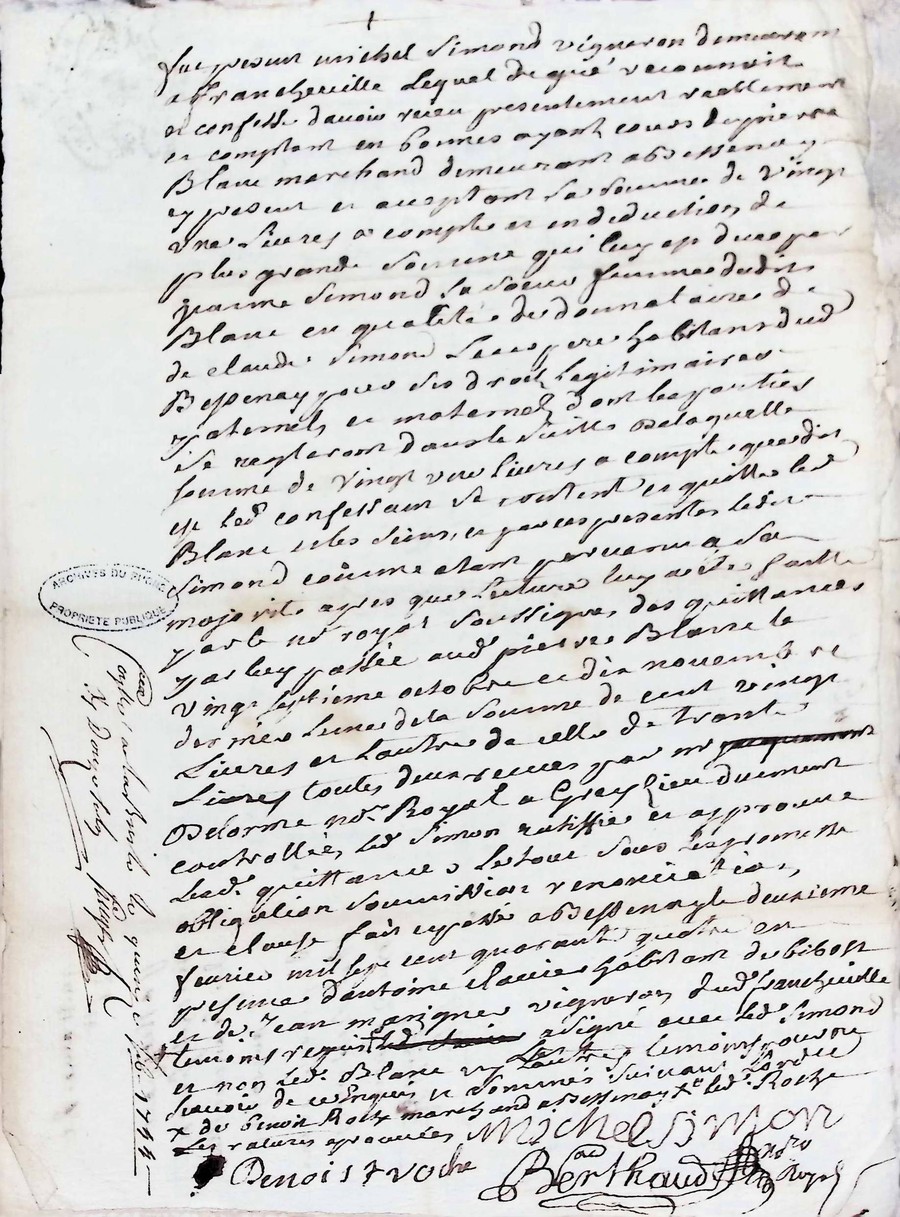 fut present michel Simond vigneron demeurant
a francheville lequel de gré reconnoit
et confesse d'avoir receu presentement reellement
et comptant en bonnes ayant cours de pierre
Blanc marchand demeurant a Bessenay
cy present et acceptant la somme de vingt
une livres a compte et in deduction de
plus grande somme qui luy est deue par
Simond sa soeur femme dudit
Blanc en qualité de donnataire de
de claude Simond pere habitans dud
Bessenay pour ses droits legitimaires
paternels et maternels dont les parties
se regleront dans la suitte de laquelle
somme de vingt une livres a compte que dit
est led confessant se content et quitte led
Blanc et les siens, et par ces presentes ledit
Simond comme etant parvenu a sa
majorité apres que lecture luy a été faitte
par le nre royal soussigné des quittances
par luy passée aud pierre Blanc le
vingt septieme octobre et dix novembre
dernier lune de la somme de cent vingt
Livres et l'autre de celle de trante
Livres toutes deux receues par me
Delorme nre Royal a Greylieu duement
controllées, led Simon ratiffie et approuve
lesd quittances le tout sous les promesse
obligation soumission renonciation
et clause fait et passé a Bessenay le deuxieme
fevrier mil sept cent quarante quatre en
presence d'antoine habitant de bibost
et de Jean vigneron dud francheville
temoins requis a signé avec led Simond
et non led Blanc ny l'autre temoin pour ne
scavoir de ce enquis et sommés suivant l'ordce
x de benoit Roche marchand a Bessenay x led Roche
Les ratures aprouvées
Michel simon
Benoist roche
Berthaud
nore Royal
ARCHIVES DU RHONE
PROPRIETE PUBLIQUE
le quinze 1744
Rd Douze sols